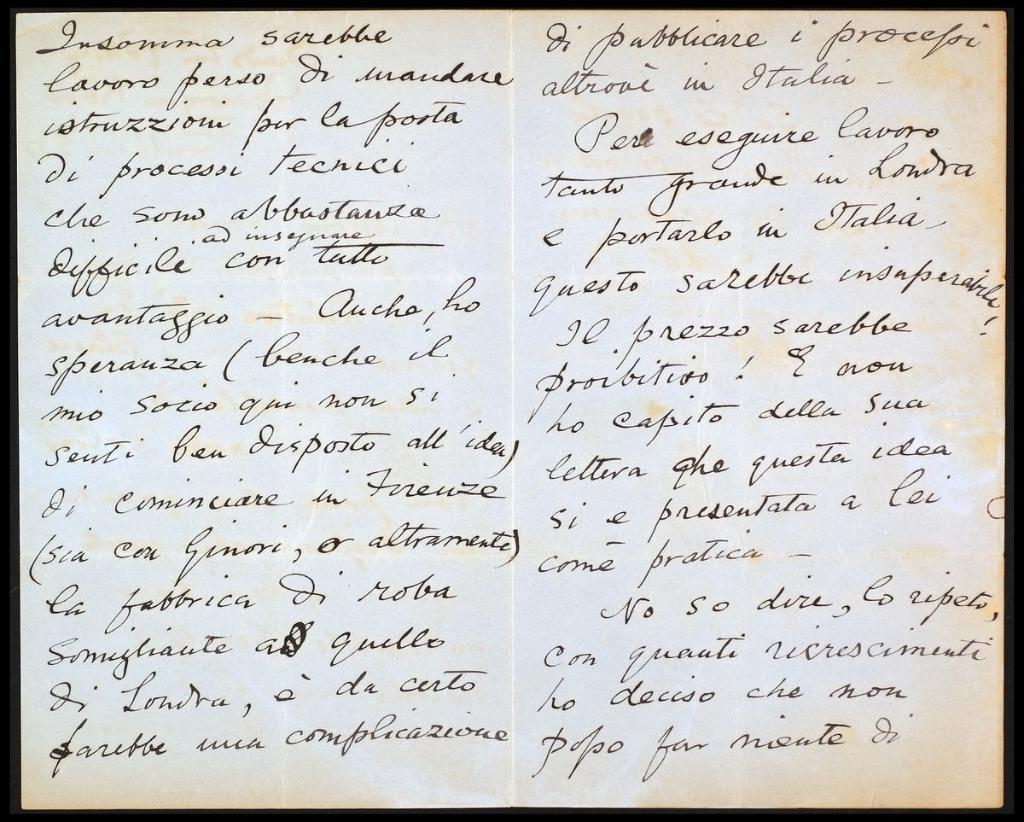 Insomma sarebbe
lavoro perso di mandare
istruzzioni per la posta
di processi tecnici
che sono abbastanza
ad insegnare
difficile con tutto
avantaggio – Anche, ho
speranza (benche il
mio socio qui non si
senti ben disposto all'idea)
di cominciare in Firenze
(sia con Ginori, o altramente)
la fabbrica di roba
somigliante a quello
di Londra, è da certo
sarebbe una complicazione
di pubblicare i processi
altrove in Italia –
Per eseguire lavoro
tanto grande in Londra
e portarlo in Italia –
questo sarebbe insuperabile!
Il prezzo sarebbe
proibitivo! E non
ho capito della sua
lettera che questa idea
si e presentata a lei
come pratica –
No so dire, lo ripeto,
con quanti ricrescimenti
ho deciso che non
posso far niente di